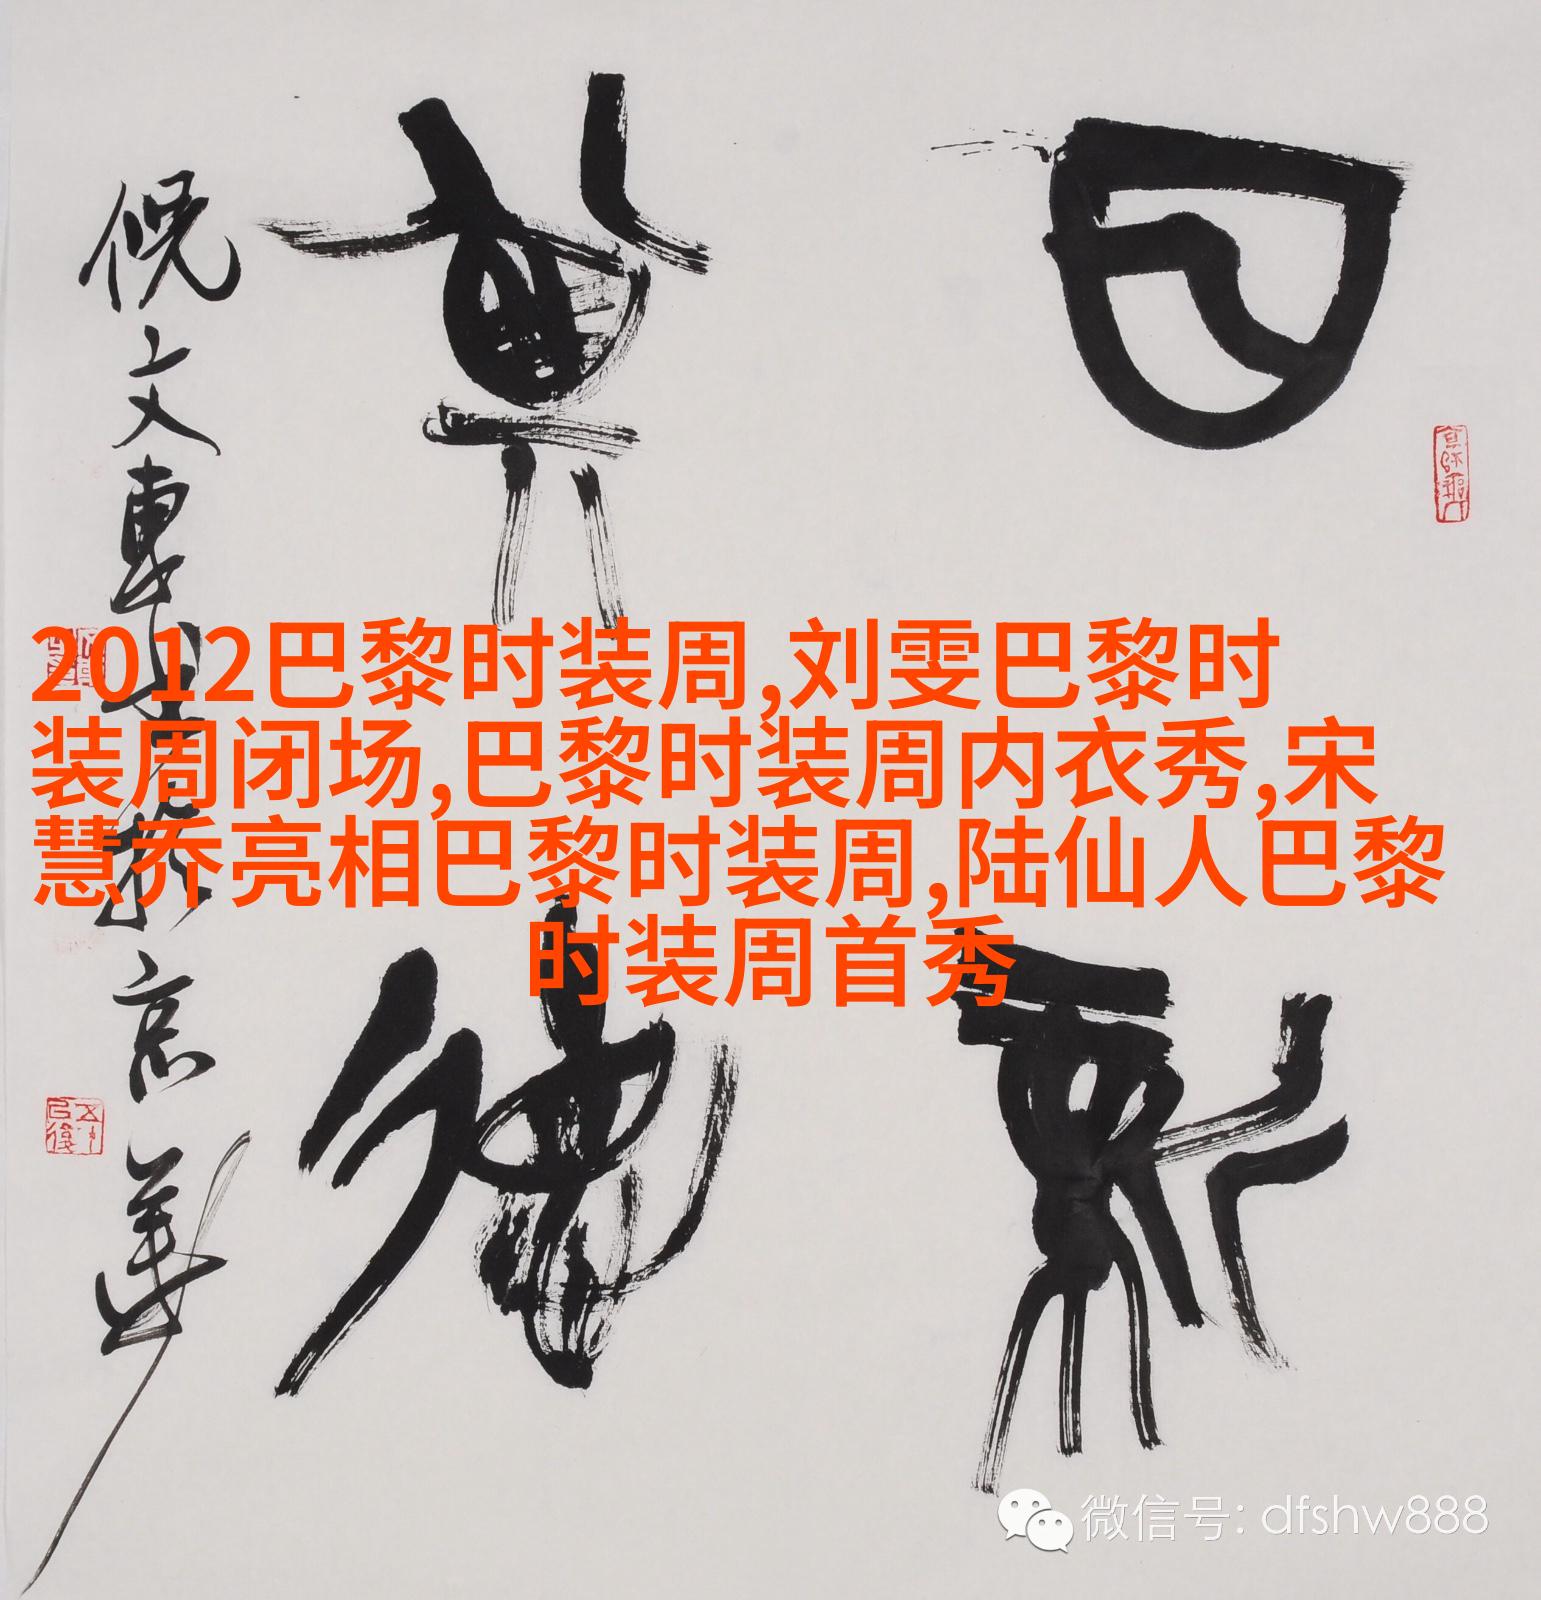 2012巴黎时装周,刘雯巴黎时
装周闭场,巴黎时装周内衣秀,宋
慧乔亮相巴黎时装周,陆仙人巴黎
时装周首秀
日新
其德
倪文東書於京華
微信号: dfshw888